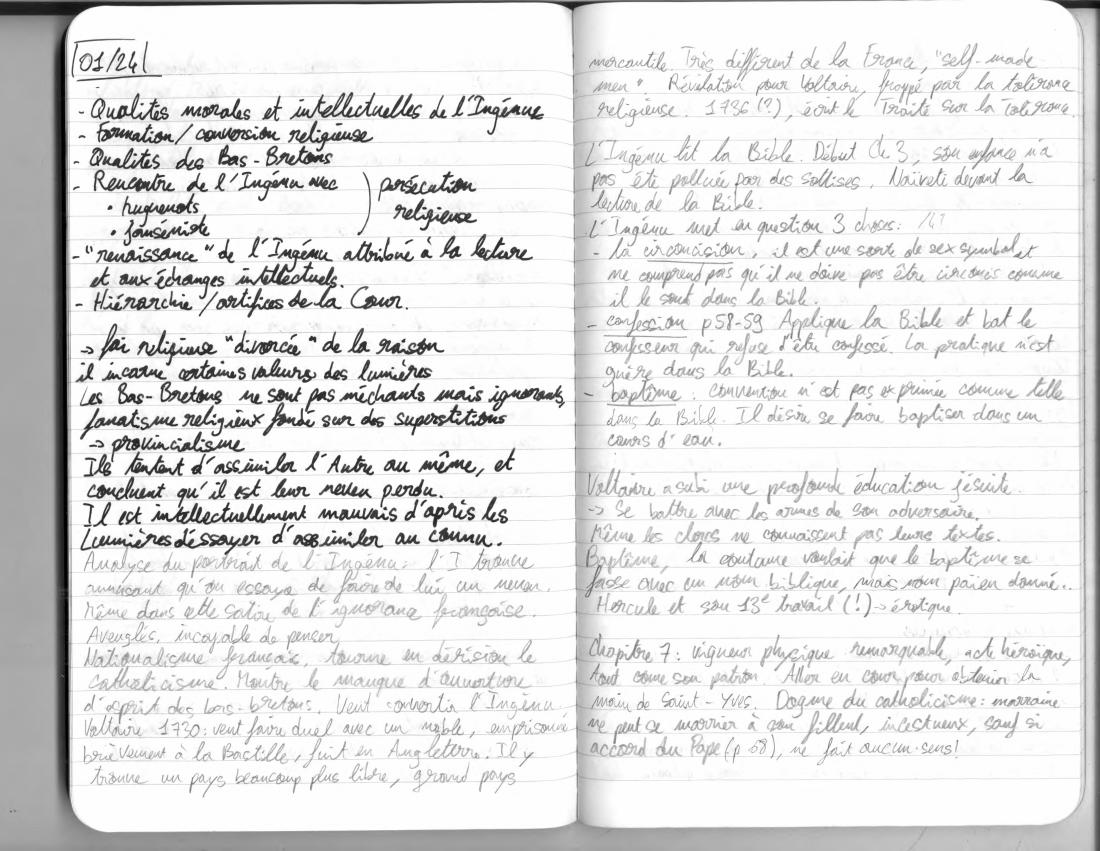 01/24
- Qualités morales et intellectuelles de l'Ingénue
- Formation/conversion religieuse
- Qualités des Bas-Bretons
- Rencontre de l'Ingénu avec ) persécution
• huguenots religieuse
• janséniste
- "renaissance" de l'Ingénu attribué à la lecture
et aux échanges intellectuels.
- Hiérarchie/artifices de la Cour.
→ foi religieuse "divorcée" de la raison
il incarne certaines valeurs des lumières
Les Bas-Bretons ne sont pas méchants mais ignorants,
fanatisme religieux fondé sur des superstitions
→ provincialisme
Ils tentent d'assimiler l'Autre au même, et
concluent qu'il est leur neveu perdu.
Il est intellectuellement mauvais d'après les
Lumières d'essayer d'assimiler au connu.
Analyse du portrait de l'Ingénu: l'I trouve
amusant qu'on essaye de faire de lui un neveu.
Même dans cette satire de l'ignorance française.
Aveuglés, incapable de penser
Nationalisme français, tourne en dérision le
catholicisme. Montre le manque d'ouverture
d'esprit des bas-bretons. Veut convertir l'Ingénu
Voltaire 1730: veut faire duel avec un noble, emprisonné
brièvement à la Bastille, fuit en Angleterre. Il y
trouve un pays beaucoup plus libre, grand pays
mercantile. Très différent de la France, "self-made
men". Révélation pour Voltaire, frappé par la tolérance
religieuse. 1736 (?), écrit le Traité sur la tolérance.
L'Ingénu lit la Bible. Début Ch 3, son enfance n'a
pas été polluée par des sottises. Naïveté devant la
lecture de la Bible.
L'Ingénu met en question 3 choses:
- la circoncision, il est une sorte de sex symbol et
ne comprend pas qu'il ne doive pas être circoncis comme
il le sont dans la Bible.
- confession p58-59 Applique la Bible et bat le
confesseur qui refuse d'être confessé. La pratique n'est
guère dans la Bible.
- baptême: convention n'est pas exprimée comme telle
dans la Bible. Il désire se faire baptiser dans un
cours d'eau.
Voltaire a subi une profonde éducation jésuite.
→ Se battre avec les armes de son adversaire.
Même les clercs ne connaissent pas leurs textes.
Baptême, la coutume voulait que le baptême se
fasse avec un nom biblique, mais nom païen donné..
Hercule et son 13e travail (!) → érotique.
Chapitre 7: vigueur physique remarquable, acte héroïque,
tout come son patron. Aller en cour pour obtenir la
main de Saint-Yves. Dogme du catholicisme: marraine
ne peut se marrier à son filleul, incestueux, sauf si
accord du Pape (p 68), ne fait aucun sens!